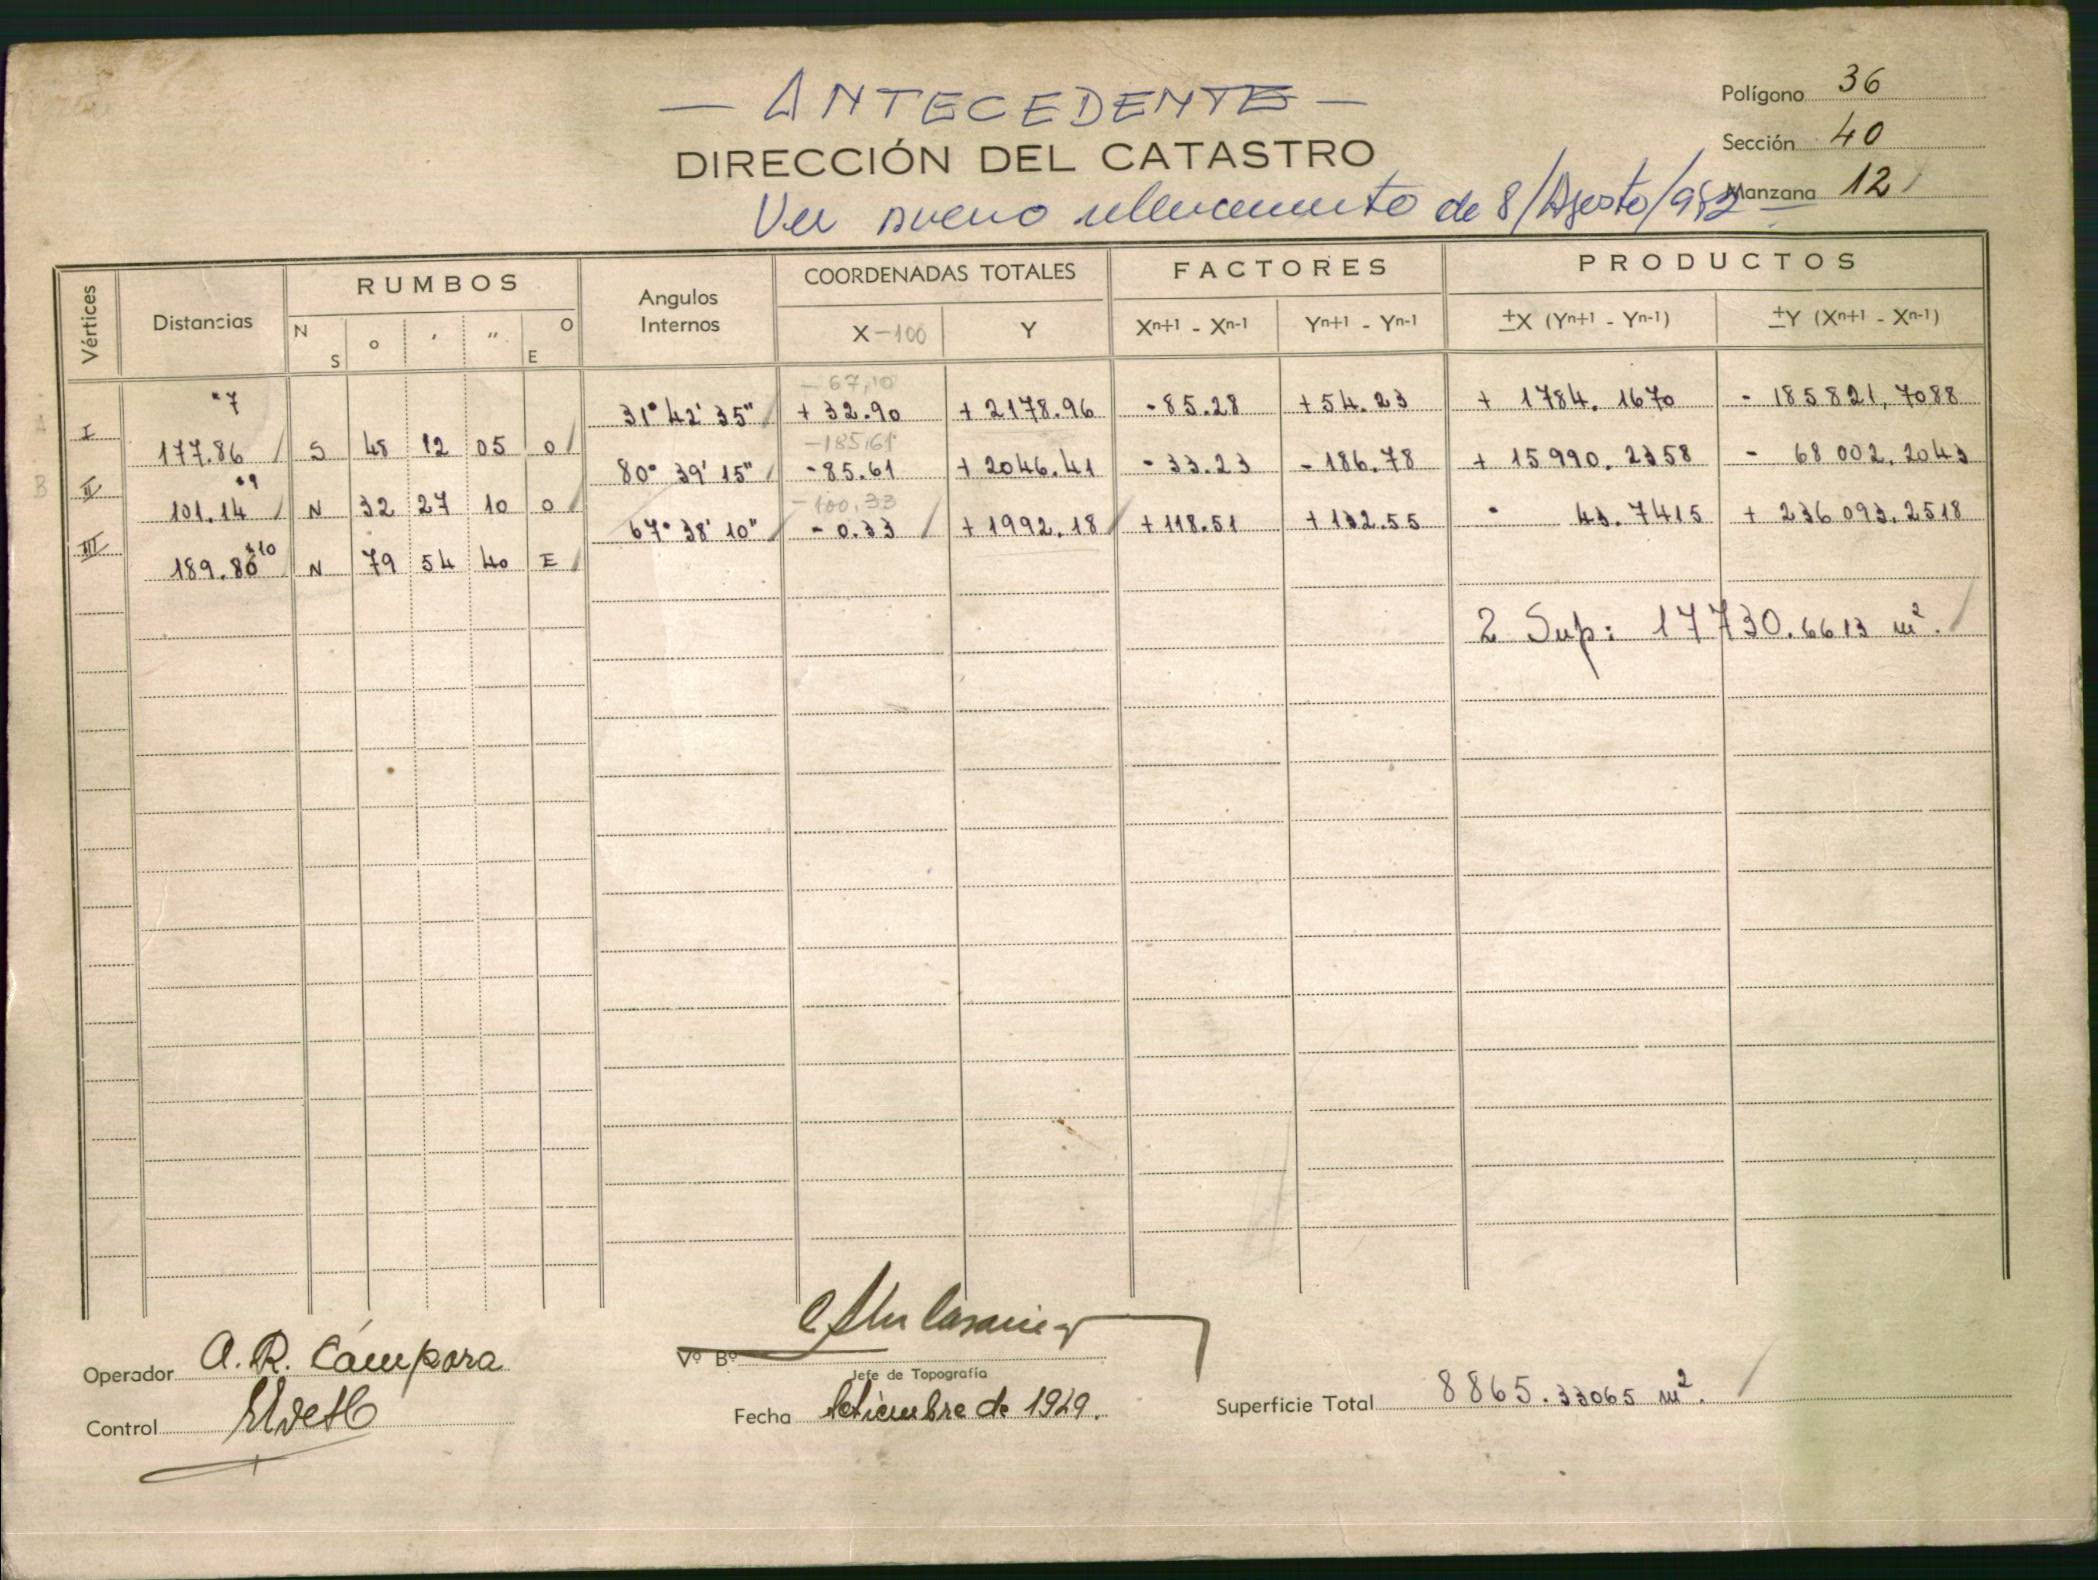 — ANTECEDENTE —
DIRECCIÓN DEL CATASTRO
Ver nuevo relevamiento de 8/Agosto/952
Polígono 36
Sección 40
Manzana 12
Vértices Distancias RUMBOS Angulos Internos COORDENADAS TOTALES FACTORES PRODUCTOS
N S ° ' " O E X -100 Y Xn+1 - Xn-1 Yn+1 - Yn-1 ±X (Yn+1 - Yn-1) ±Y (Xn+1 - Xn-1)
-67,10
7 31° 42' 35" + 32.90 + 2178.96 - 85.28 + 54.23 + 1784. 1670 - 185821, 7088
A I
-185,61
177.86 S 48 12 05 O
9 80° 39' 15" - 85.61 + 2046.41 - 33.23 - 186.78 + 15990. 2358 - 68 002. 2043
B II
-100,33
101.14 N 32 27 10 O
10 67° 38' 10" - 0.33 + 1992.18 + 118.51 + 132.55 - 43. 7415 + 236 093. 2518
III
189.86 N 79 54 40 E
2 Sup: 17730.6613 m².
Operador A. R. Cámpora
Control
Vº Bº
Jefe de Topografía
Fecha Setiembre de 1929.
Superficie Total 8865.33065 m².